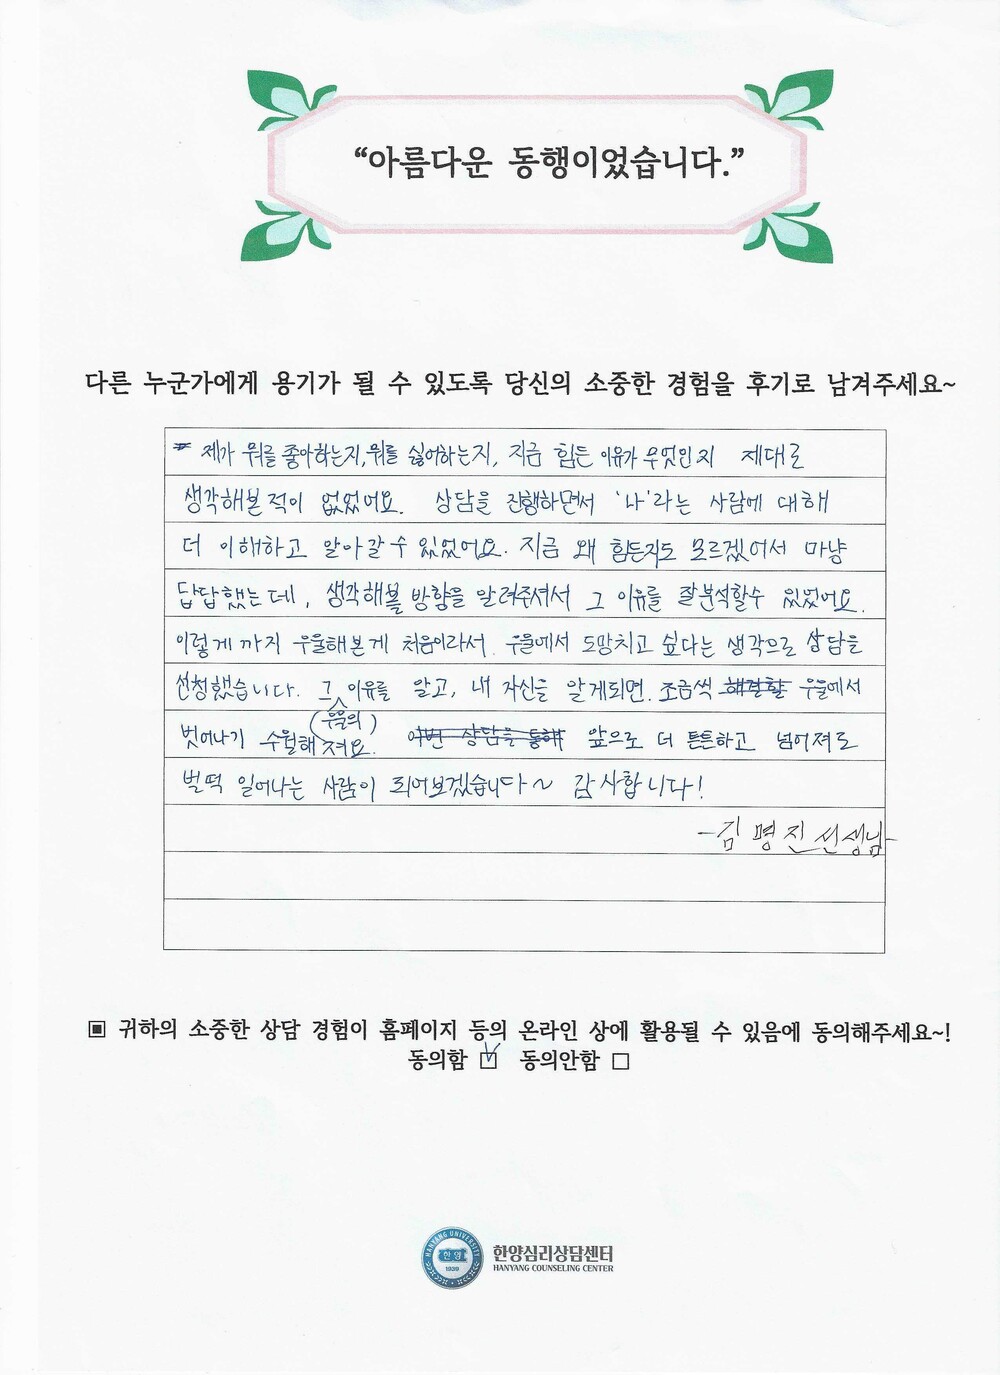 “아름다운 동행이었습니다.”
다른 누군가에게 용기가 될 수 있도록 당신의 소중한 경험을 후기로 남겨주세요~
제가 뭐를 좋아하는지, 뭐를 싫어하는지, 지금 힘든 이유가 무엇인지 제대로
생각해본 적이 없었어요. 상담을 진행하면서 '나'라는 사람에 대해
더 이해하고 알아갈 수 있었어요. 지금 왜 힘든지도 모르겠어서 마냥
답답했는데, 생각해볼 방향을 알려주셔서 그 이유를 잘 분석할 수 있었어요.
이렇게 까지 우울해본게 처음이라서 우울에서 도망치고 싶다는 생각으로 상담을
신청했습니다. 그 이유를 알고, 내 자신을 알게되면 조금씩 해결할 우울에서
(우울의)
벗어나기 수월해져요. 이번 상담을 통해 앞으로 더 튼튼하고 넘어져도
벌떡 일어나는 사람이 되어보겠습니다~ 감사합니다!
-김명진 선생님-
▣ 귀하의 소중한 상담 경험이 홈페이지 등의 온라인 상에 활용될 수 있음에 동의해주세요~!
동의함 ☑ 동의안함 □
HANYANG UNIVERSITY
한양
1939
한양심리상담센터
HANYANG COUNSELING CENTER